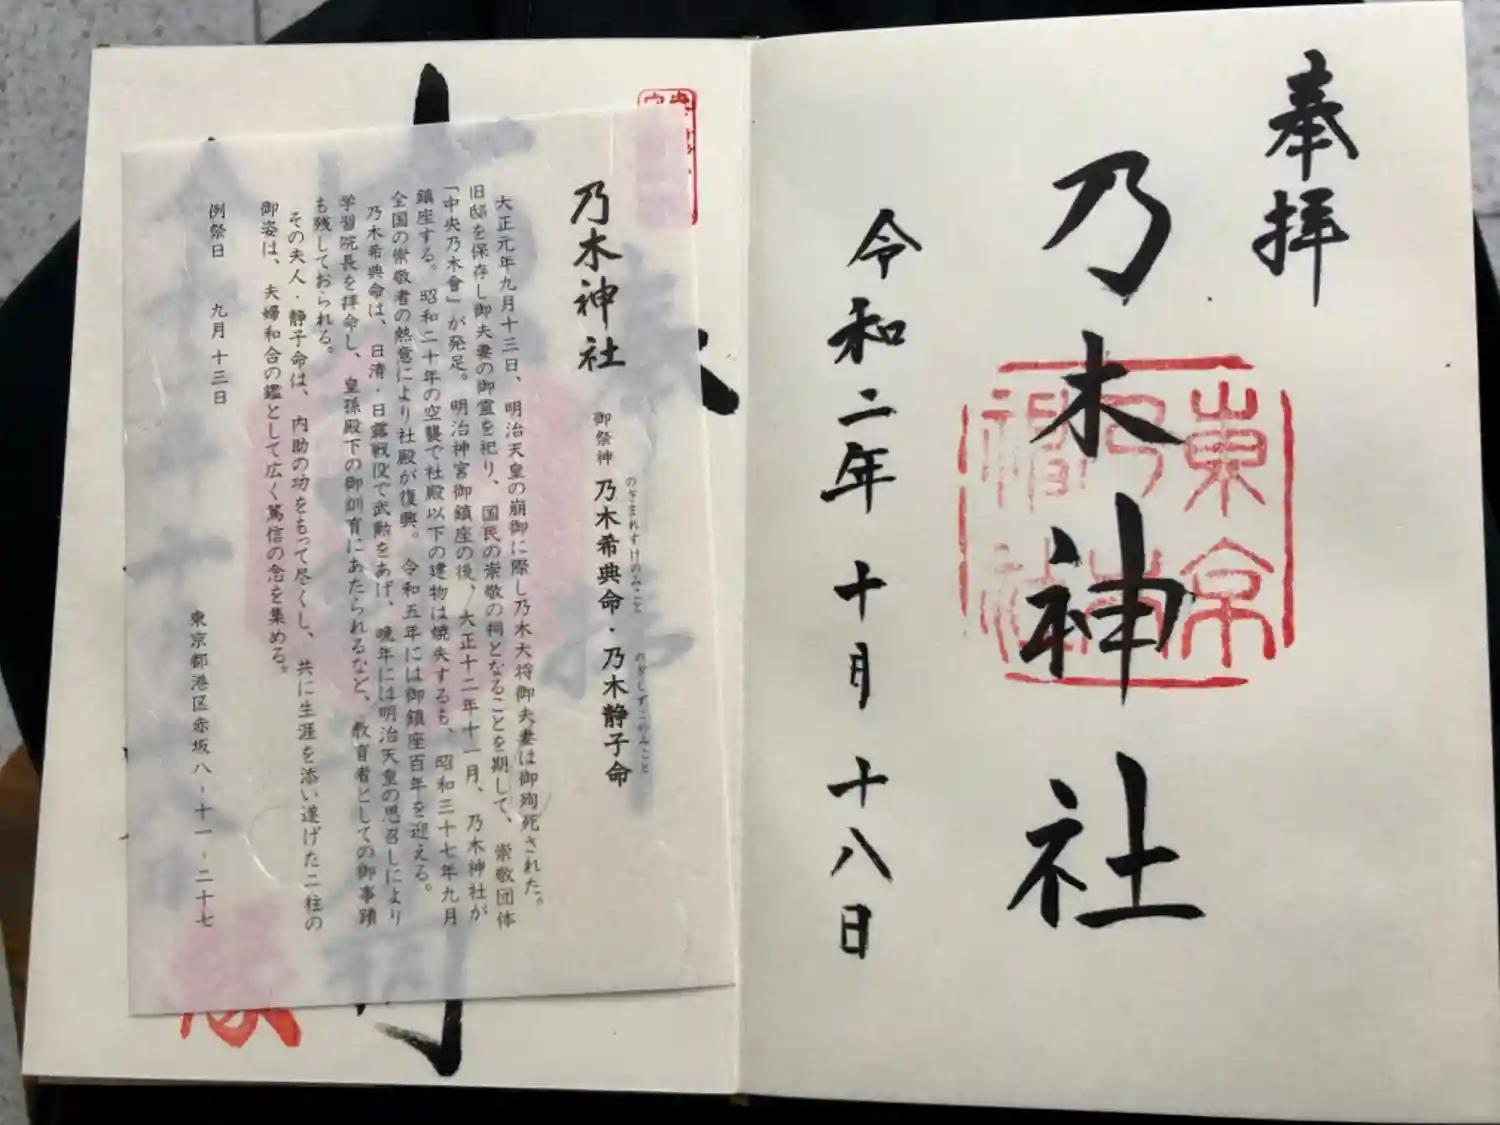 奉拝
乃木神社
東京
乃木
神社
令和二年十月十八日
乃木神社
御祭神 乃木希典命・乃木静子命
のぎまれすけのみこと のぎしずこのみこと
大正元年九月十三日、明治天皇の崩御に際し乃木大将御夫妻は御殉死された。
旧邸を保存し御夫妻の御霊を祀り、国民の崇敬の祠となることを期して、崇敬団体
「中央乃木會」が発足。明治神宮御鎮座の後、大正十二年十一月、乃木神社が
鎮座する。昭和二十年の空襲で社殿以下の建物は焼失するも、昭和三十七年九月
全国の崇敬者の熱意により社殿が復興。令和五年には御鎮座百年を迎える。
乃木希典命は、日清・日露戦役で武勲をあげ、晩年には明治天皇の思召しにより
学習院長を拝命し、皇孫殿下の御訓育にあたられるなど、教育者としての御事蹟
も残しておられる。
その夫人・静子命は、内助の功をもって尽くし、共に生涯を添い遂げた二柱の
御姿は、夫婦和合の鑑として広く篤信の念を集める。
例祭日 九月十三日
東京都港区赤坂八-十一-二十七